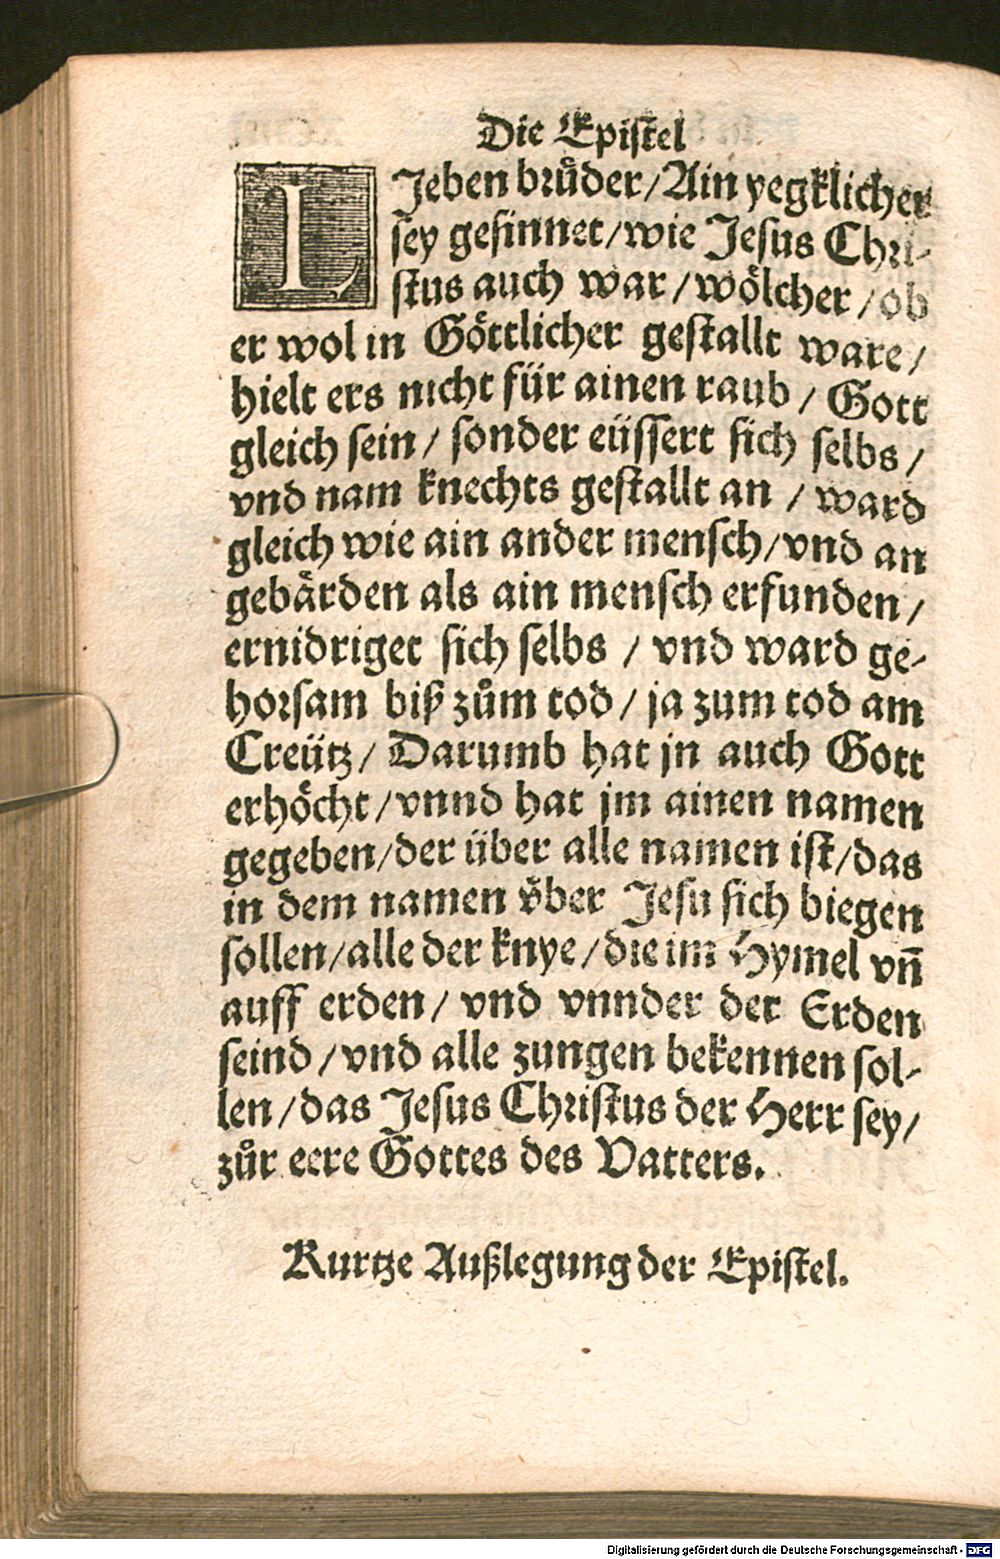 Die Epistel
LJeben brůder/Ain yegklicher
sey gesinnet/wie Jesus Chri-
stus auch war/wölcher/ob
er wol in Göttlicher gestallt ware/
hielt ers nicht für ainen raub/Gott
gleich sein/sonder eüssert sich selbs/
vnd nam knechts gestallt an/ward
gleich wie ain ander mensch/vnd an
gebärden als ain mensch erfunden/
ernidriget sich selbs/vnd ward ge-
horsam biß zům tod/ja zum tod am
Creütz/Darumb hat jn auch Gott
erhöcht/vnnd hat jm ainen namen
gegeben/der über alle namen ist/das
in dem namen v̈ber Jesu sich biegen
sollen/alle der knye/die im Hymel vñ
auff erden/vnd vnnder der Erden
seind/vnd alle zungen bekennen sol-
len/das Jesus Christus der Herr sey/
zůr eere Gottes des Vatters.
Kurtze Außlegung der Epistel.
Digitalisierung gefördert durch die Deutsche Forschungsgemeinschaft - DFG